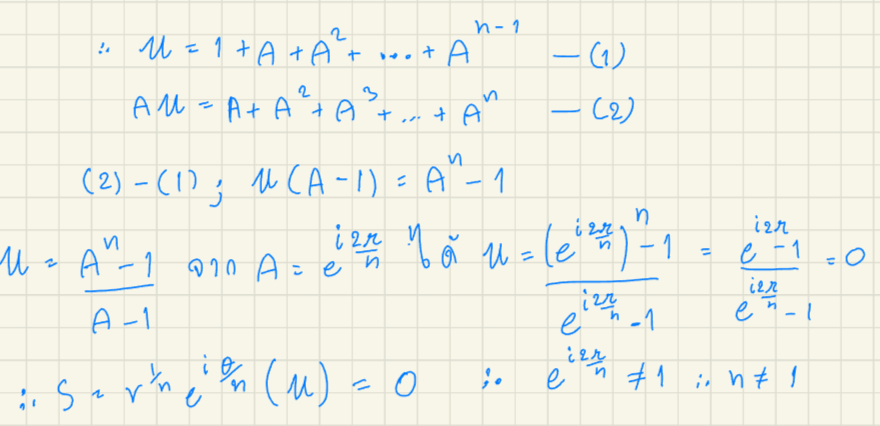 ∴ u = 1 + A + A² + .... + Aⁿ⁻¹ — (1)
Au = A + A² + A³ + ... + Aⁿ — (2)
(2) - (1) ; u (A - 1) = Aⁿ - 1
u = (Aⁿ - 1)/(A - 1) จาก A = e^(i2π/n) ได้ u = ((e^(i2π/n))ⁿ - 1)/(e^(i2π/n) - 1) = (e^(i2π) - 1)/(e^(i2π/n) - 1) = 0
∴ S = r^(1/n) e^(iθ/n) (u) = 0 ∵ e^(i2π/n) ≠ 1 ∴ n ≠ 1